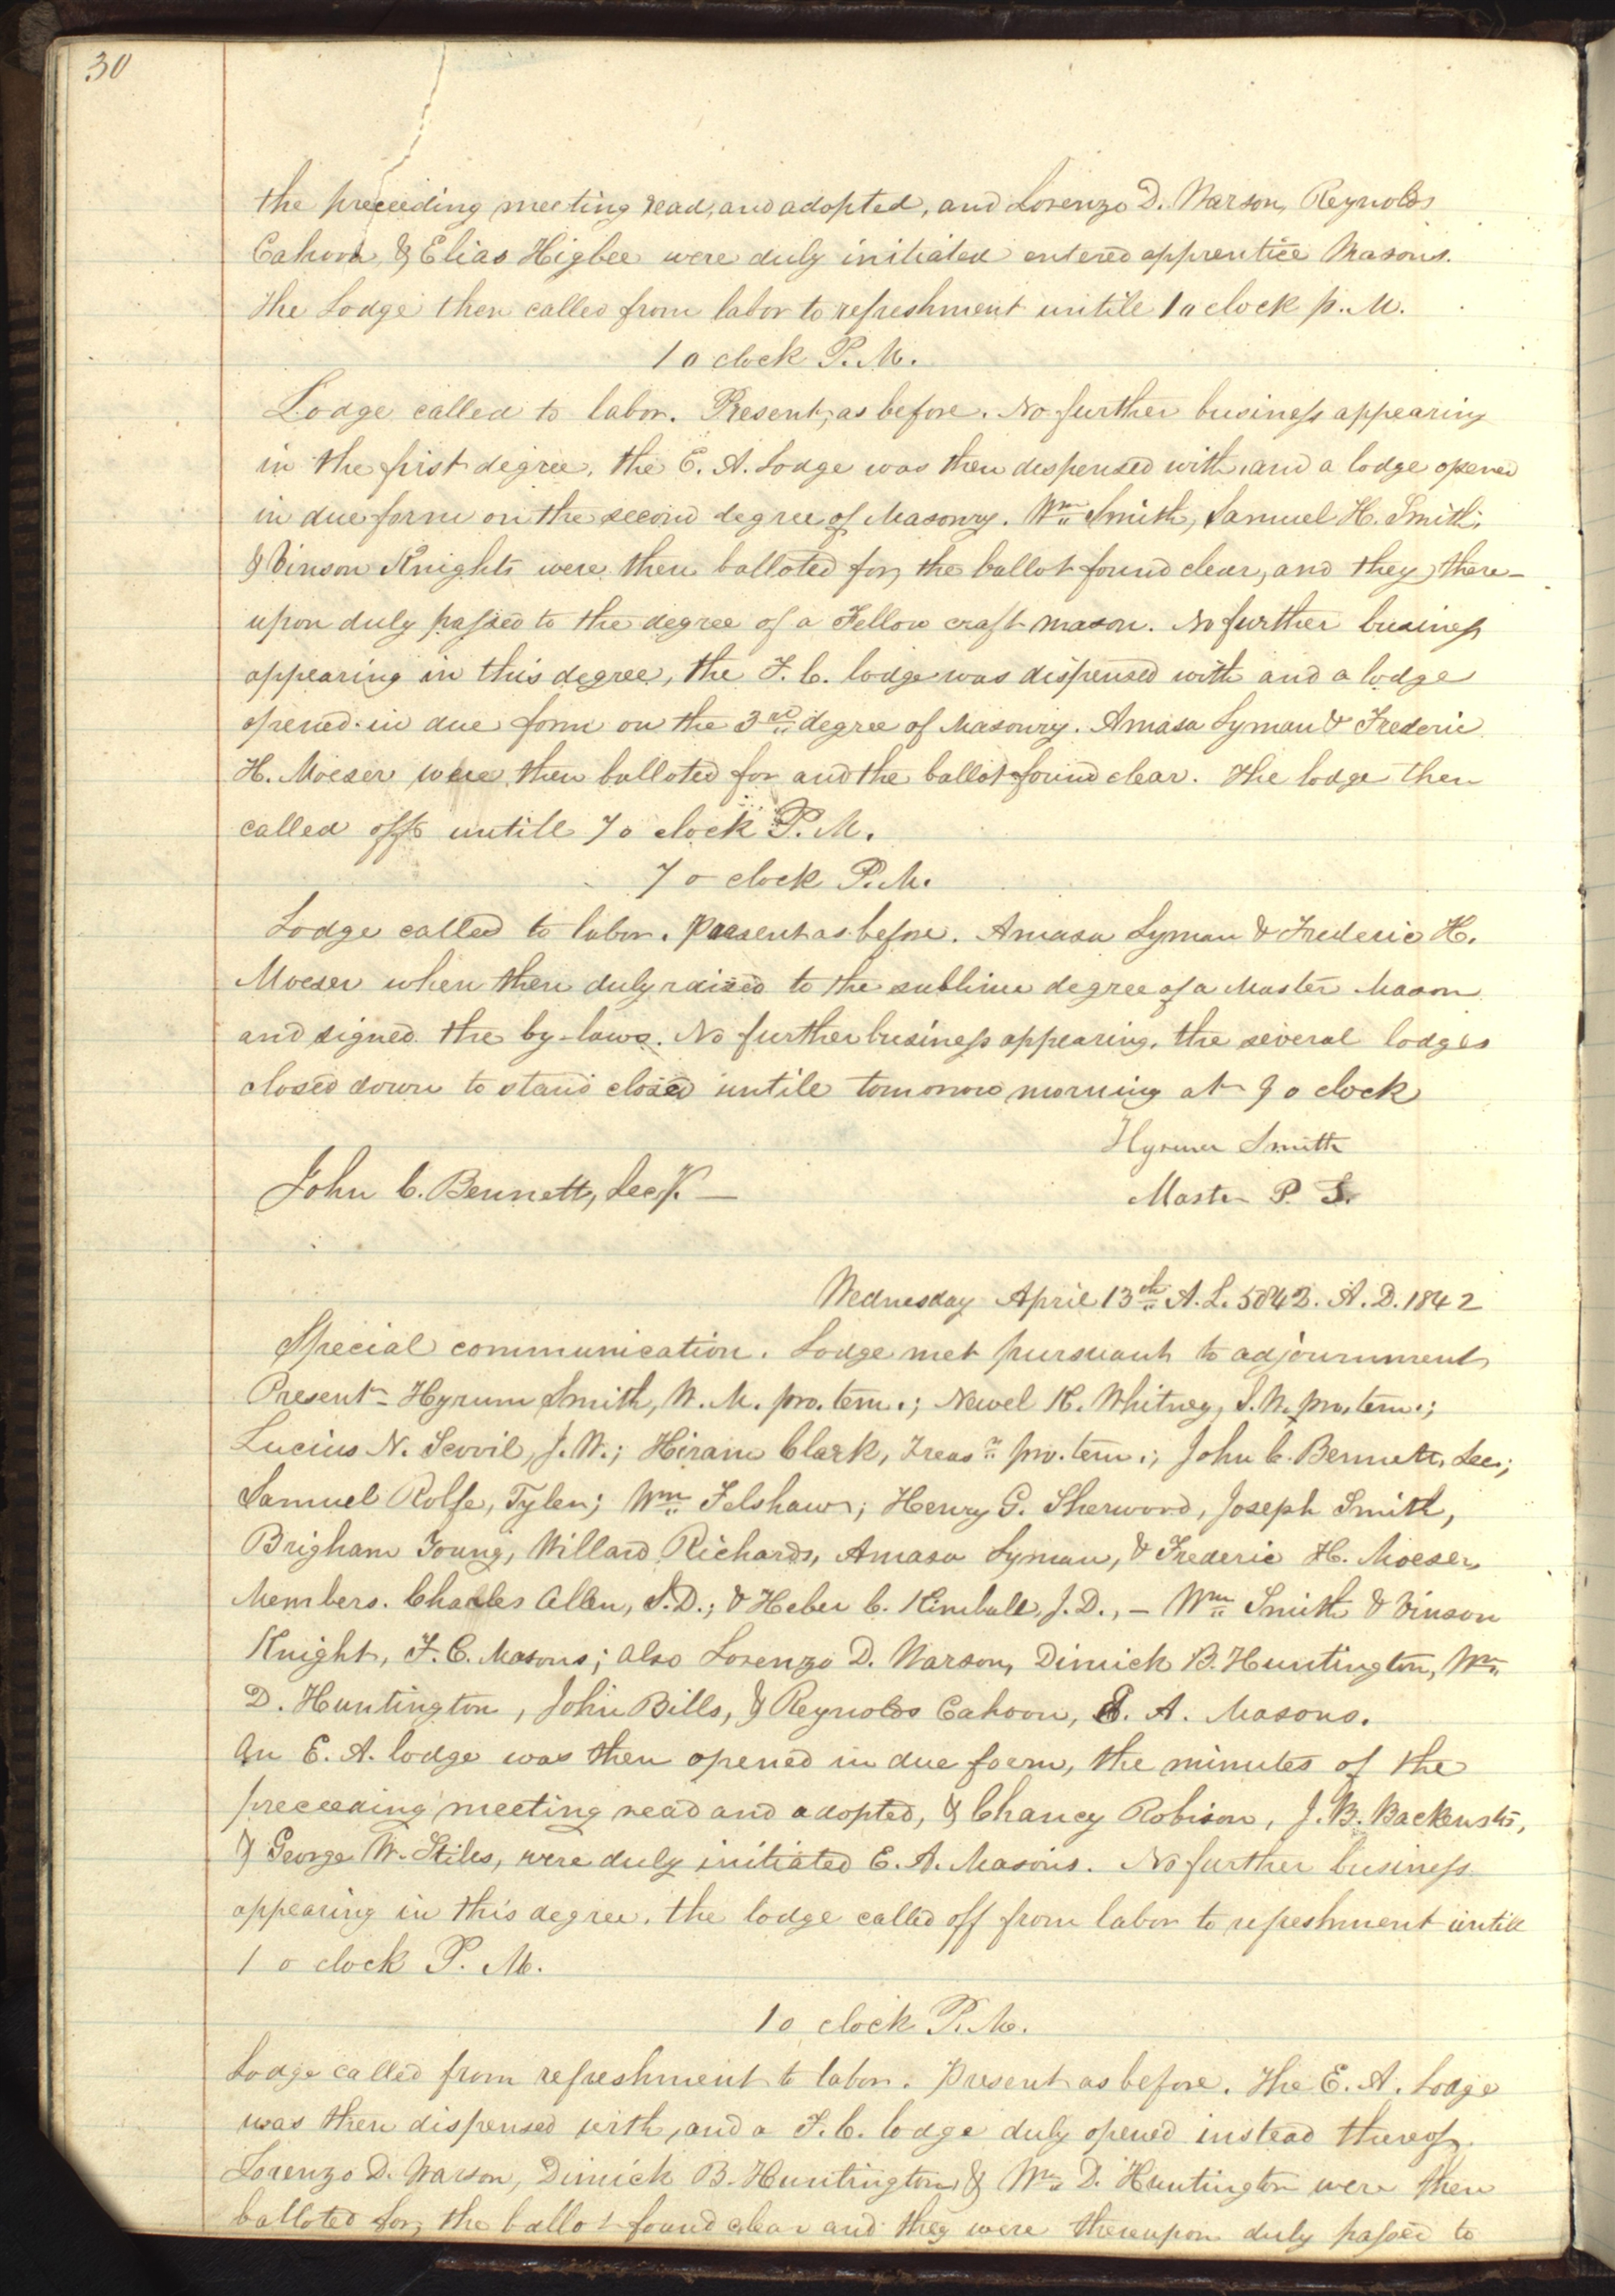 30
the preceeding meeting read, and adopted, and Lorenzo D. Warson, Reynolds
Cahoon, & Elias Higbee were duly initiated entered apprentice Masons.
The Lodge then called from labor to refreshment untile 1 o clock p. M.
1 o clock P. M.
Lodge called to labor. Present, as before. No further business appearing
in the first degree, the E. A. Lodge was then despensed with, and a lodge opened
in due form on the second degree of Masonry. Wm Smith, Samuel H. Smith,
& Vinson Knights were then balloted for, the ballot found clear, and they there-
upon duly passed to the degree of a Fellow craft mason. No further business
appearing in this degree, the F. C. lodge was dispensed with and a lodge
opened in due form on the 3rd degree of Masonry. Amasa Lyman & Frederic
H. Moeser were then balloted for and the ballot found clear. The lodge then
called off untill 7 o clock P. M.
7 o clock P. M.
Lodge called to labor. Present as before. Amasa Lyman & Frederic H.
Moeser when then duly raised to the sublime degree of a Master Mason
and signed the by-laws. No further business appearing, the several lodges
closed down to stand closed untile tomorrow morning at 9 o clock
Hyrum Smith
John C. Bennett, Secy. — Master P. T.
Wednesday April 13th A. L. 5842. A. D. 1842
Special communication. Lodge met pursuant to adjournment
Present - Hyrum Smith, W. M. pro. tem.; Newel K. Whitney, S. W. pro. tem.;
Lucius N. Scovil, J. W.; Hiram Clark, Treasr pro. tem.; John C. Bennett, Sec;
Samuel Rolfe, Tyler; Wm Felshaw; Henry G. Sherwood, Joseph Smith,
Brigham Young, Willard Richards, Amasa Lyman, & Frederic H. Moeser,
Members. Charles Allen, S. D.; & Heber C. Kimball, J. D., - Wm Smith & Vinson
Knight, F. C. Masons; also Lorenzo D. Warson, Dimick B. Huntington, Wm
D. Huntington, John Bills, & Reynolds Cahoon, E. A. Masons.
An E. A. lodge was then opened in due form, the minutes of the
preceeding meeting read and adopted, & Chancy Robison, J. B. Backenstos,
& George W. Stiles, were duly initiated E. A. Masons. No further business
appearing in this degree, the lodge called off from labor to refreshment untill
1 o clock P. M.
1 o clock P. M.
Lodge called from refreshment to labor. Present as before. The E. A. Lodge
was then dispensed with, and a F. C. lodge duly opened instead thereof.
Lorenzo D. Warson, Dimick B. Huntington & Wm D. Huntington were then
balloted for, the ballot found clear and they were thereupon duly passed to